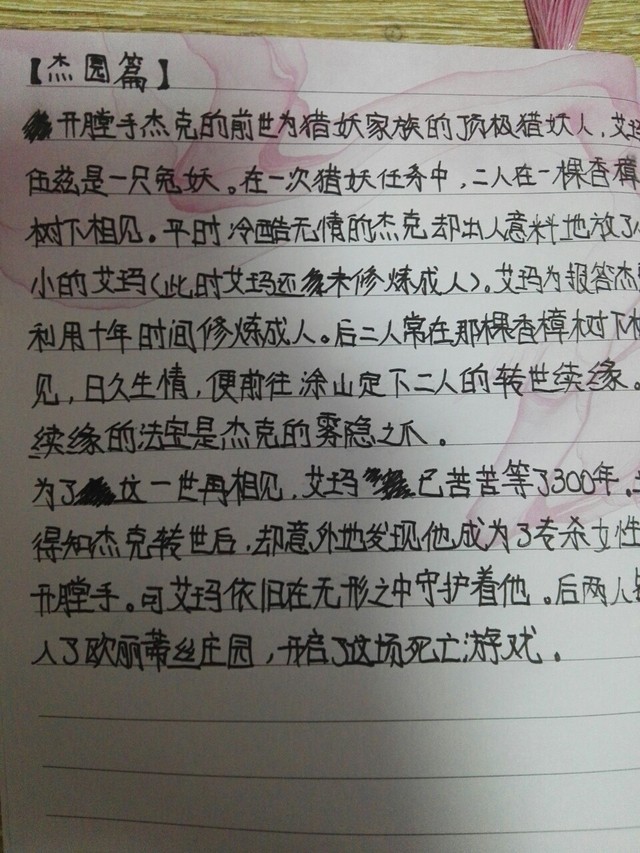 【杰园篇】
开膛手杰克的前世为猎妖家族的顶极猎妖人，艾玛
伍兹是一只兔妖。在一次猎妖任务中，二人在一棵香樟
树下相见。平时冷酷无情的杰克却出人意料地放了
小的艾玛（此时艾玛还未修炼成人）。艾玛为报答杰
利用十年时间修炼成人。后二人常在那棵香樟树下相
见，日久生情，便前往涂山定下二人的转世续缘。
续缘的法宝是杰克的雾隐之爪。
为了这一世再相见，艾玛已苦苦等了300年。
得知杰克转世后，却意外地发现他成为了专杀女性
开膛手。可艾玛依旧在无形之中守护着他。后两人
入了欧丽蒂丝庄园，开启了这场死亡游戏。